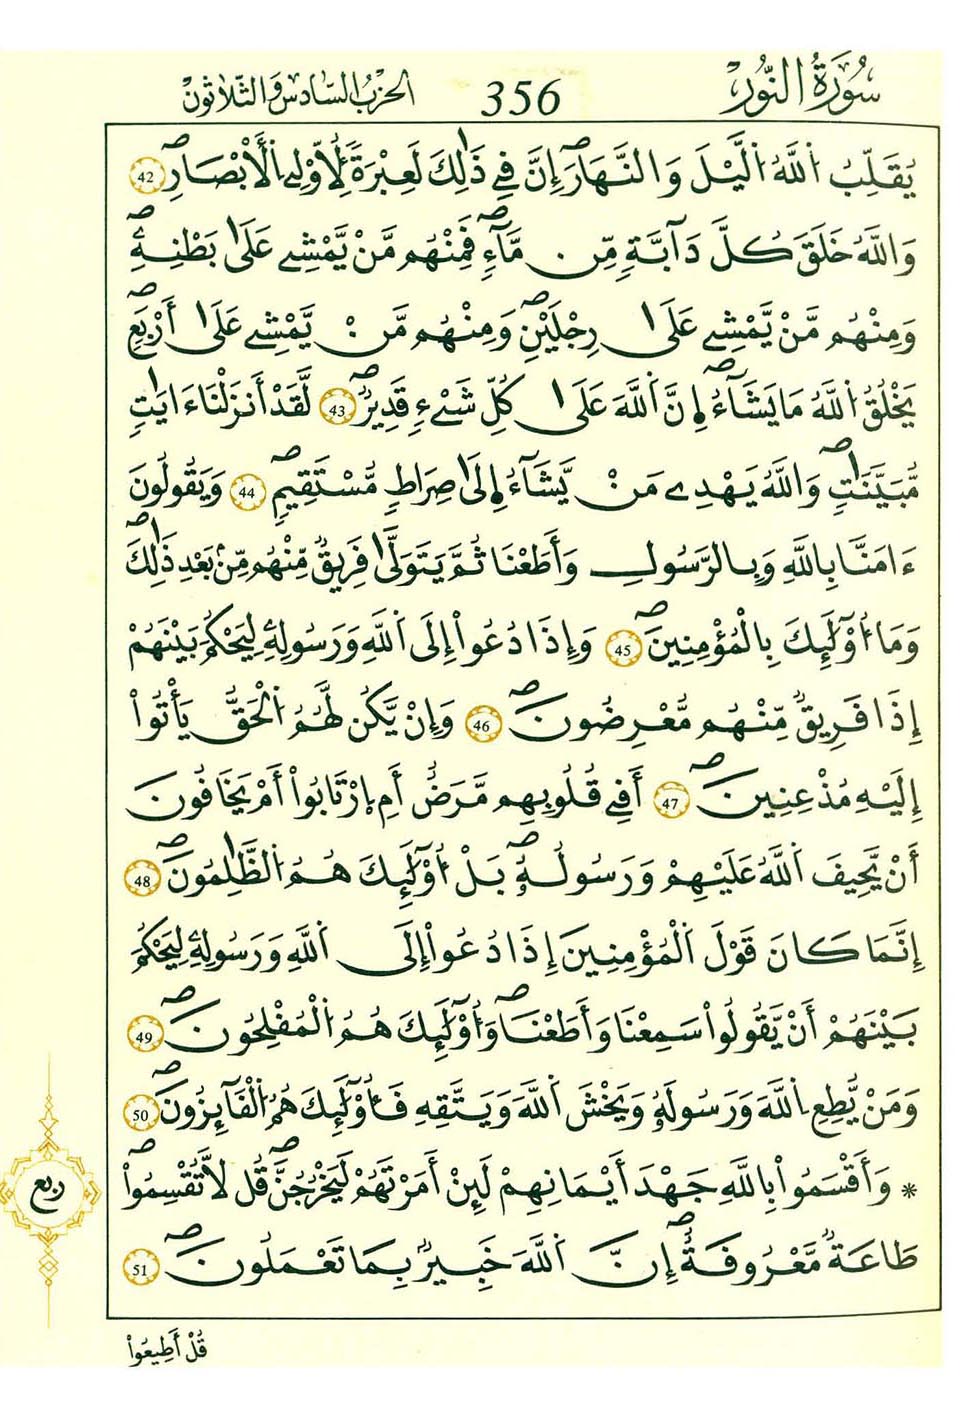 سُورَةُ النُّورِ 356 الحزبُ السَّادس وَالثَّلَاثُون
يُقَلِّبُ اُ۬للَّهُ اُ۬ليْلَ وَالنَّهَارَۖ إِنَّ فِے ذَٰلِكَ لَعِبْرَةٗ لِّأُوْلِے اِ۬لْأَبْصَٰرِۖ 42
وَاللَّهُ خَلَقَ كُلَّ دَآبَّةٖ مِّن مَّآءٖۖ فَمِنْهُم مَّنْ يَّمْشِے عَلَىٰ بَطْنِهِۦۖ
وَمِنْهُم مَّنْ يَّمْشِے عَلَىٰ رِجْلَيْنِۖ وَمِنْهُم مَّنْ يَّمْشِے عَلَىٰٓ أَرْبَعٖۖ
يَخْلُقُ اُ۬للَّهُ مَا يَشَآءُۖ اِ۪نَّ اَ۬للَّهَ عَلَىٰ كُلِّ شَےْءٖ قَدِيرٞۖ 43 لَّقَدْ أَنزَلْنَا ءَايَٰتٖ
مُّبَيَّنَٰتٖۖ وَاللَّهُ يَهْدِے مَنْ يَّشَآءُ اِ۪لَىٰ صِرَٰطٖ مُّسْتَقِيمٖۖ 44 وَيَقُولُونَ
ءَامَنَّا بِاللَّهِ وَبِالرَّسُولِ وَأَطَعْنَا ثُمَّ يَتَوَلَّىٰ فَرِيقٞ مِّنْهُم مِّنۢ بَعْدِ ذَٰلِكَۖ
وَمَا أُوْلَٰٓئِكَ بِالْمُؤْمِنِينَۖ 45 وَإِذَا دُعُواْ إِلَى اَ۬للَّهِ وَرَسُولِهِۦ لِيَحْكُمَ بَيْنَهُمْ
إِذَا فَرِيقٞ مِّنْهُم مُّعْرِضُونَۖ 46 وَإِنْ يَّكُن لَّهُمُ اُ۬لْحَقُّ يَأْتُواْ
إِلَيْهِ مُذْعِنِينَۖ 47 أَفِے قُلُوبِهِم مَّرَضٌ أَمِ اِ۪رْتَابُواْ أَمْ يَخَافُونَ
أَنْ يَّحِيفَ اَ۬للَّهُ عَلَيْهِمْ وَرَسُولُهُۥۖ بَلُ اُ۟وْلَٰٓئِكَ هُمُ اُ۬لظَّٰلِمُونَۖ 48
إِنَّمَا كَانَ قَوْلَ اَ۬لْمُؤْمِنِينَ إِذَا دُعُواْ إِلَى اَ۬للَّهِ وَرَسُولِهِۦ لِيَحْكُمَ
بَيْنَهُمْ أَنْ يَّقُولُواْ سَمِعْنَا وَأَطَعْنَاۖ وَأُوْلَٰٓئِكَ هُمُ اُ۬لْمُفْلِحُونَۖ 49
وَمَنْ يُّطِعِ اِ۬للَّهَ وَرَسُولَهُۥ وَيَخْشَ اَ۬للَّهَ وَيَتَّقِهِ فَأُوْلَٰٓئِكَ هُمُ اُ۬لْفَآئِزُونَۖ 50
* وَأَقْسَمُواْ بِاللَّهِ جَهْدَ أَيْمَٰنِهِمْ لَئِنْ أَمَرْتَهُمْ لَيَخْرُجُنَّۖ قُل لَّا تُقْسِمُواْ
ربع
طَاعَةٞ مَّعْرُوفَةٌۖ إِنَّ اَ۬للَّهَ خَبِيرُۢ بِمَا تَعْمَلُونَۖ 51
قُلْ أَطِيعُواْ